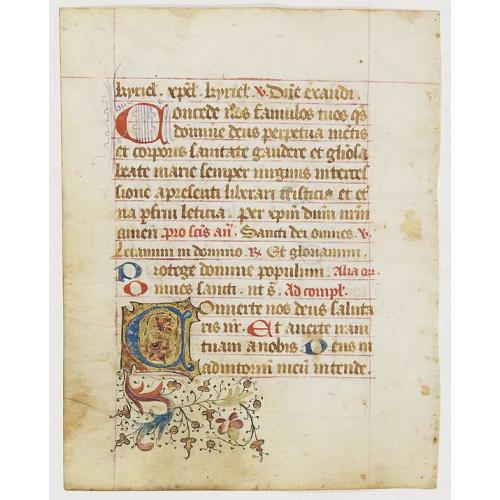 kyriel. xpel. kyriel. v. Dne exaudi.
Concede nos famulos tuos qs
domine deus perpetua metis
et corporis sanitate gaudere et ghosa
beate marie semper virginis interces
sione apresenti liberari tristicia et et
na pfrui leticia. Per xpm dnm nrm
amen pro scis an. Sancti dei omnes. v.
Letamini in domino. R. Et gloriamini.
Protege domine populum. Alia or.
Omnes sancti. ut s. Ad compl.
Converte nos deus saluta
ris nr. Et averte iram
tuam a nobis. Deus in
adiutoriu meu intende.